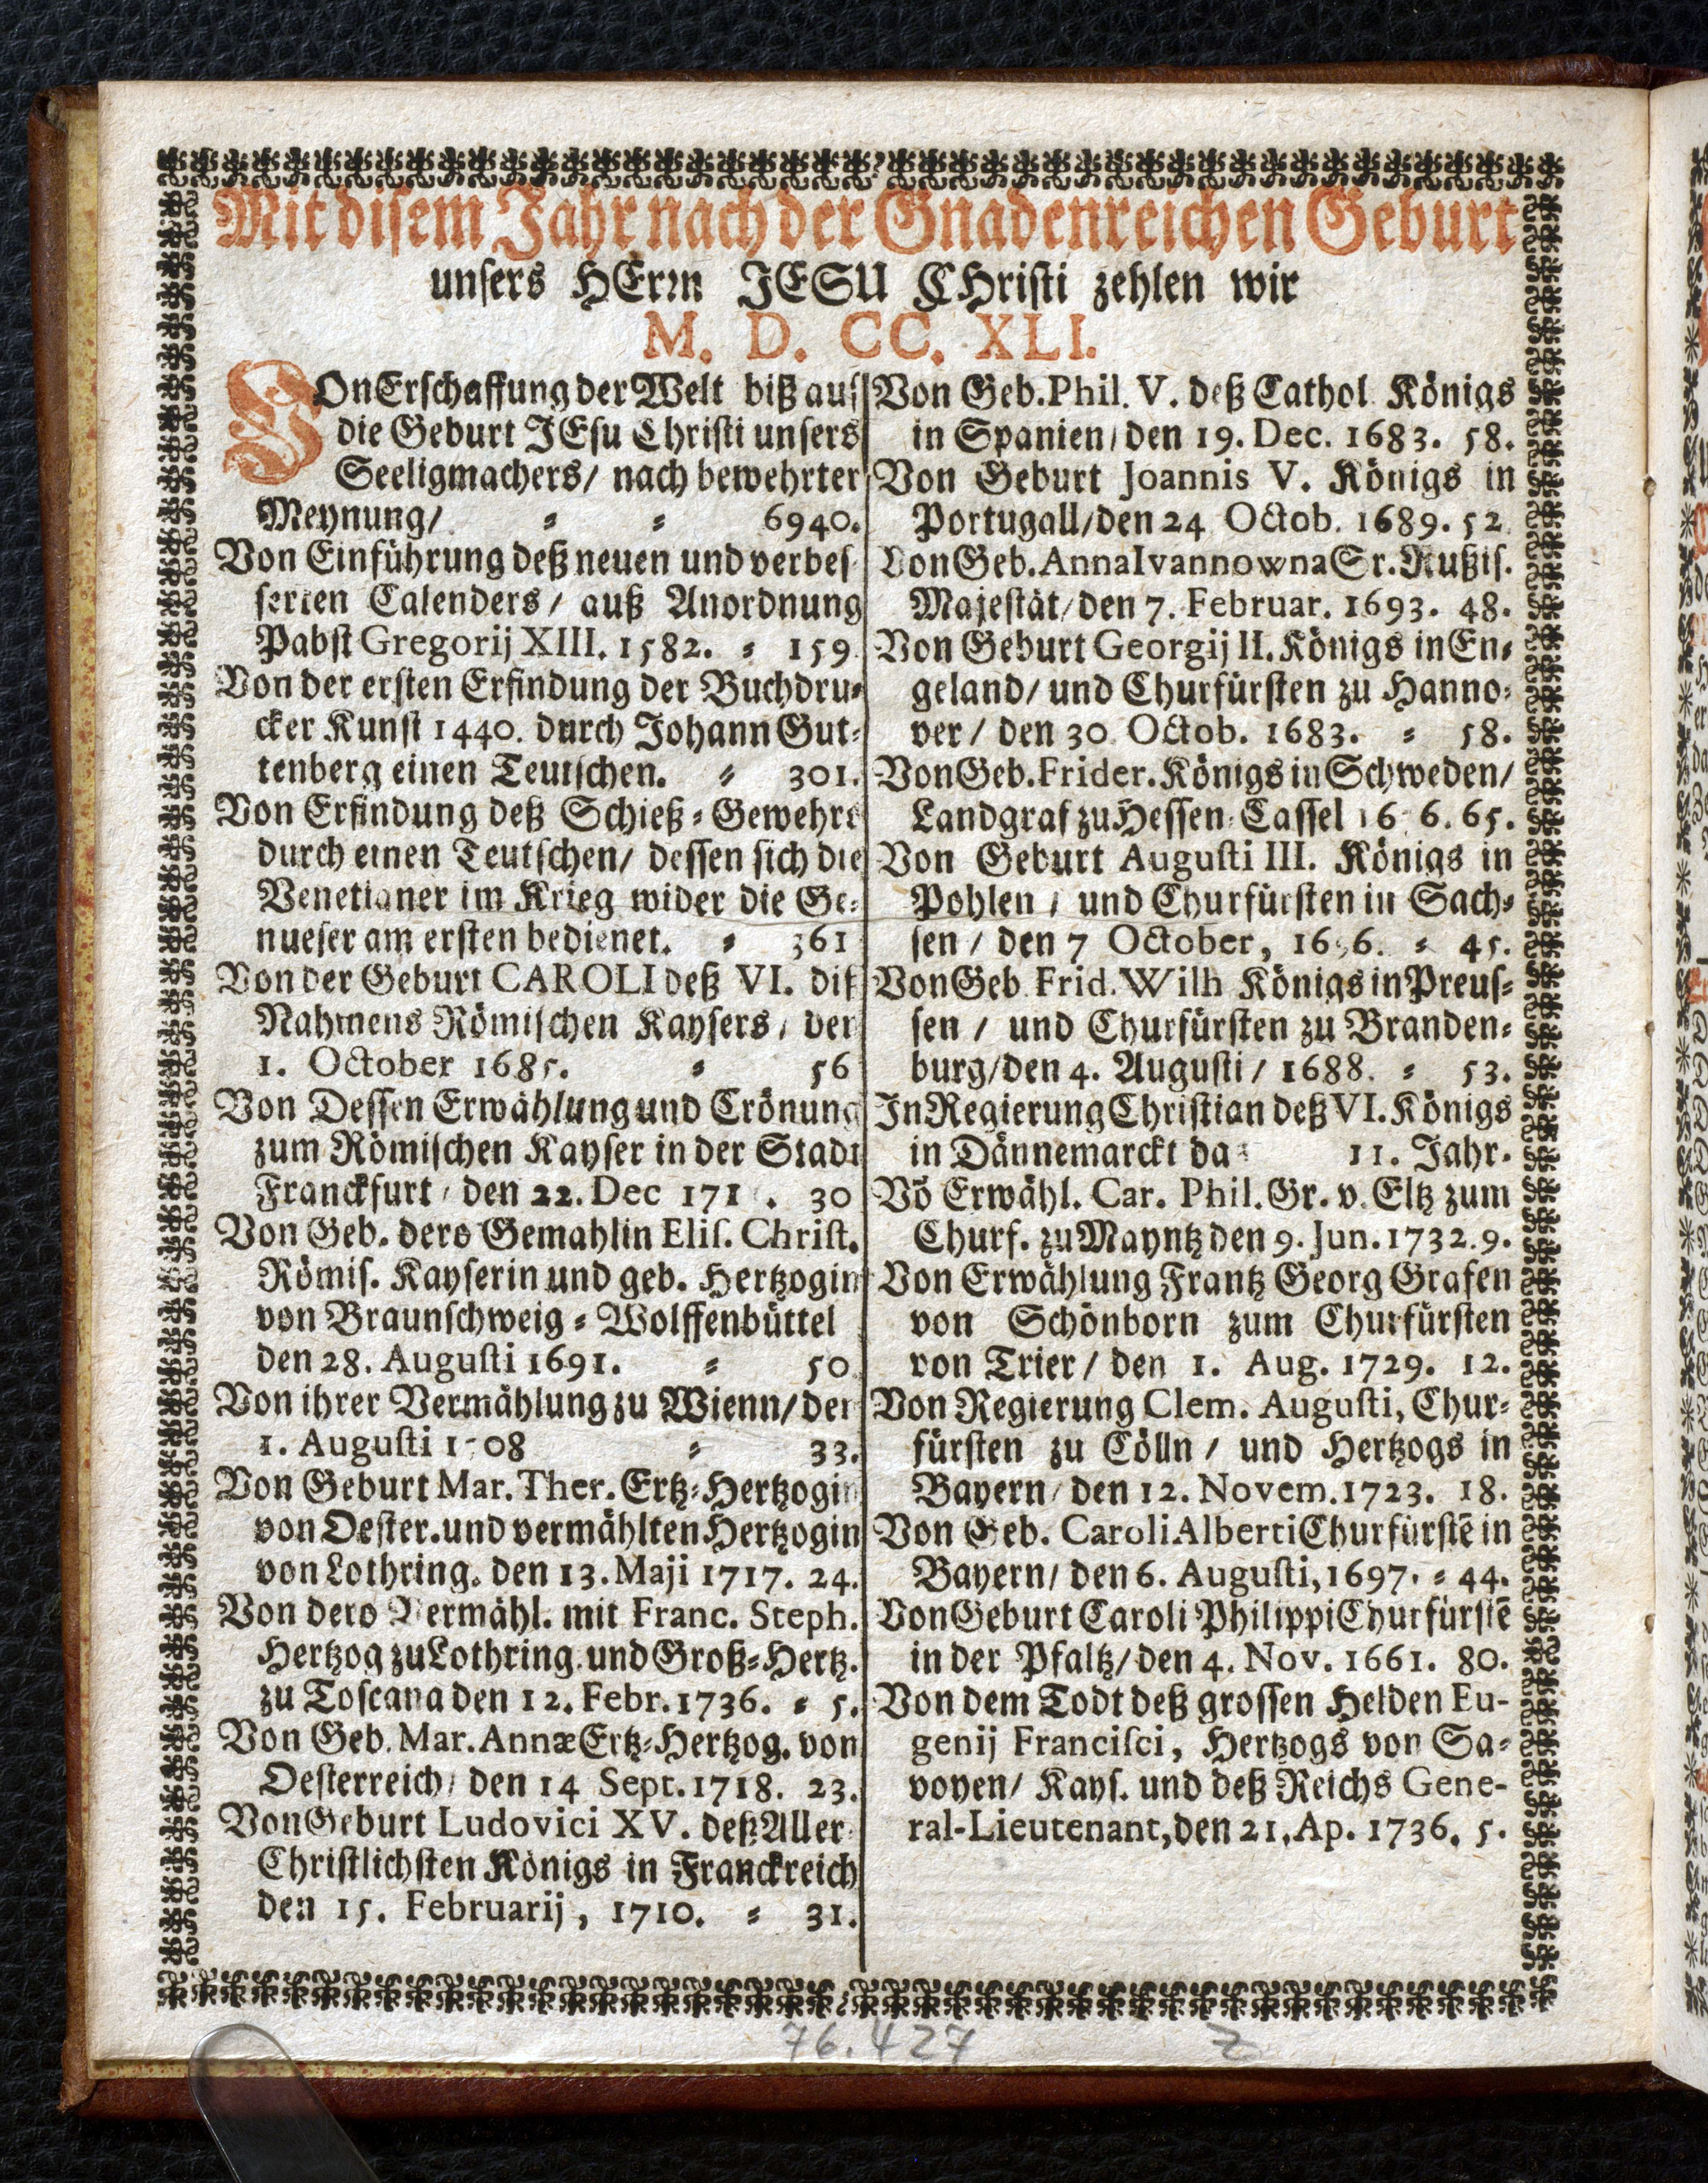 Mit disem Jahr nach der Gnadenreichen Geburt
unsers HErrn JESU CHristi zehlen wir
M. D. CC. XLI.
VOn Erschaffung der Welt biß auf
die Geburt JEsu Christi unsers
Seeligmachers/ nach bewehrter
Meynung/ = = 6940.
Von Einführung deß neuen und verbes-
serten Calenders/ auß Anordnung
Pabst Gregorij XIII. 1582. = 159.
Von der ersten Erfindung der Buchdru=
cker Kunst 1440. durch Johann Gut=
tenberg einen Teutschen. = 301.
Von Erfindung deß Schieß=Gewehrs
durch einen Teutschen/ dessen sich die
Venetianer im Krieg wider die Ge=
nueser am ersten bedienet. = 361
Von der Geburt CAROLI deß VI. diß
Nahmens Römischen Kaysers/ den
1. October 1685. = 56
Von Dessen Erwählung und Crönung
zum Römischen Kayser in der Stadt
Franckfurt/ den 22. Dec 171 . 30
Von Geb. dero Gemahlin Elis. Christ.
Römis. Kayserin und geb. Hertzogin
von Braunschweig=Wolffenbüttel
den 28. Augusti 1691. = 50
Von ihrer Vermählung zu Wienn/ den
1. Augusti 1708 = 33.
Von Geburt Mar. Ther. Ertz=Hertzogin
von Oester. und vermählten Hertzogin
von Lothring. den 13. Maji 1717. 24.
Von dero Vermähl. mit Franc. Steph.
Hertzog zu Lothring. und Groß=Hertz.
zu Toscana den 12. Febr. 1736. = 5.
Von Geb. Mar. Annæ Ertz=Hertzog. von
Oesterreich/ den 14 Sept. 1718. 23.
Von Geburt Ludovici XV. deß Aller=
Christlichsten Königs in Franckreich
den 15. Februarij, 1710. = 31.
Von Geb. Phil. V. deß Cathol. Königs
in Spanien/ den 19. Dec. 1683. 58.
Von Geburt Joannis V. Königs in
Portugall/ den 24 Octob. 1689. 52.
Von Geb. Anna Ivannowna Gr. Rußis.
Majestät/ den 7. Februar. 1693. 48.
Von Geburt Georgij II. Königs in En=
geland/ und Churfürsten zu Hanno=
ver/ den 30 Octob. 1683. = 58.
Von Geb. Frider. Königs in Schweden/
Landgraf zu Hessen=Cassel 16 6. 65.
Von Geburt Augusti III. Königs in
Pohlen/ und Churfürsten in Sach=
sen/ den 7 October, 1696. = 45.
Von Geb. Frid. Wilh Königs in Preus=
sen/ und Churfürsten zu Branden=
burg/ den 4. Augusti/ 1688. = 53.
In Regierung Christian deß VI. Königs
in Dännemarckt da= 11. Jahr.
Võ Erwähl. Car. Phil. Gr. v. Eltz zum
Churf. zu Mayntz den 9. Jun. 1732. 9.
Von Erwählung Frantz Georg Grafen
von Schönborn zum Churfürsten
von Trier/ den 1. Aug. 1729. 12.
Von Regierung Clem. Augusti, Chur=
fürsten zu Cölln/ und Hertzogs in
Bayern/ den 12. Novem. 1723. 18.
Von Geb. Caroli Alberti Churfürstē in
Bayern/ den 6. Augusti, 1697. = 44.
Von Geburt Caroli Philippi Churfürstē
in der Pfaltz/ den 4. Nov. 1661. 80.
Von dem Todt deß grossen Helden Eu-
genij Francisci, Hertzogs von Sa=
voyen/ Kays. und deß Reichs Gene-
ral-Lieutenant, den 21, Ap. 1736. 5.
76.427 Z